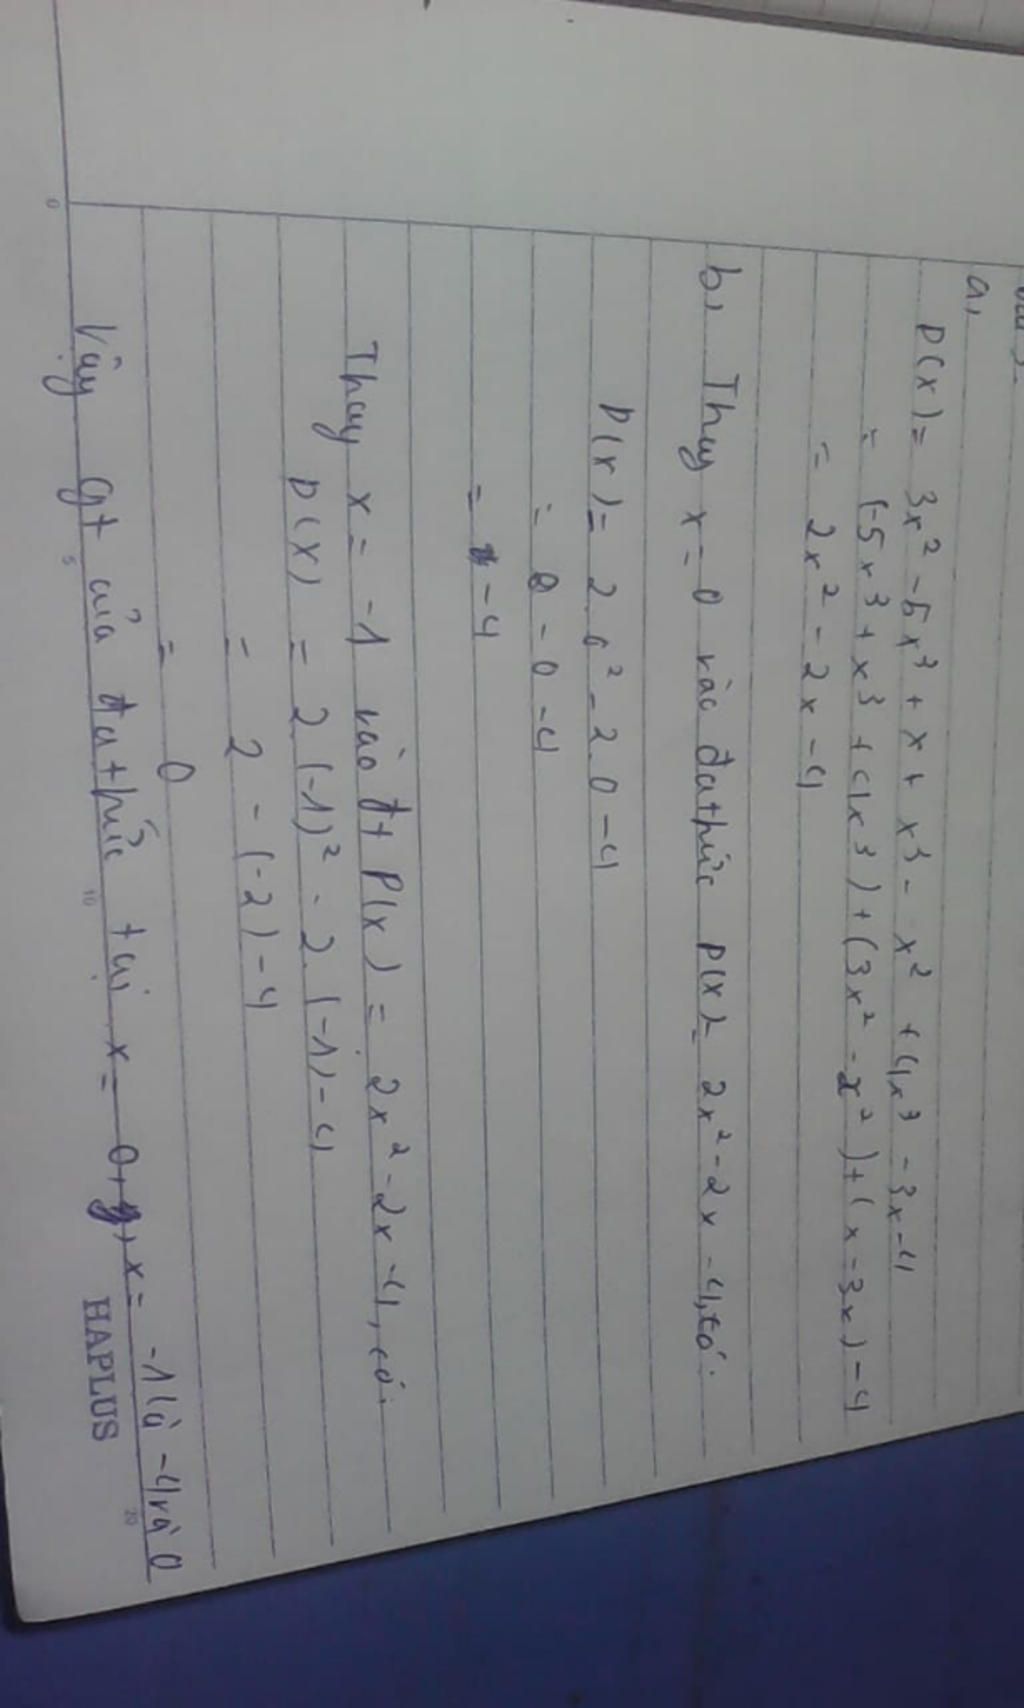 a,
P(x) = 3x² - 5x³ + x + x³ - x² + 4x³ - 3x - 4
= (-5x³ + x³ + 4x³) + (3x² - x²) + (x - 3x) - 4
= 2x² - 2x - 4
b, Thay x = 0 vào đa thức P(x) = 2x² - 2x - 4, có:
P(x) = 2.0² - 2.0 - 4
= 0 - 0 - 4
= - 4
Thay x = -1 vào đt P(x) = 2x² - 2x - 4, có:
P(x) = 2.(-1)² - 2.(-1) - 4
= 2 - (-2) - 4
= 0
Vậy gt của đa thức tại x = 0, x = -1 là -4 và 0
HAPLUS
0 5 10 20